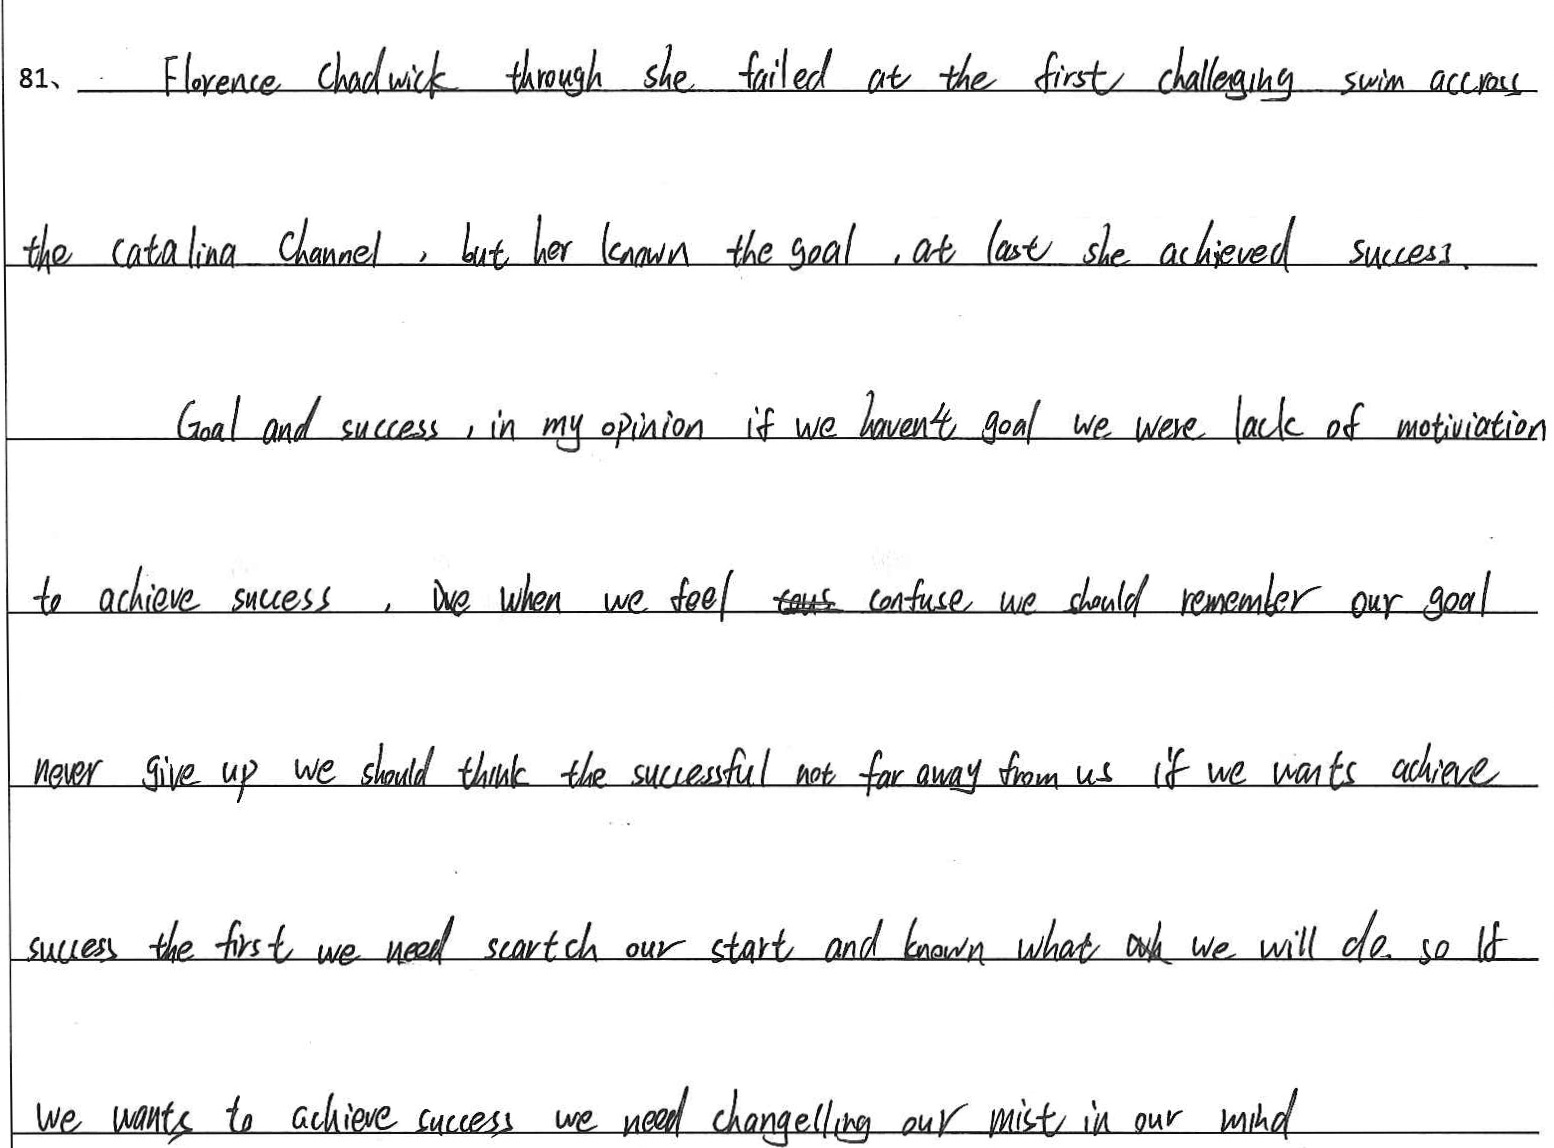 81、 Florence Chadwick through she failed at the first challeging swim accross
the catalina Channel , but her known the goal , at last she achieved success.
Goal and success , in my opinion if we haven't goal we were lack of motiviation
to achieve success . when we feel confuse we should remember our goal
never give up we should think the successful not far away from us if we wants achieve
success the first we need scartch our start and known what we will do. so If
we wants to achieve success we need changelling our mist in our mind